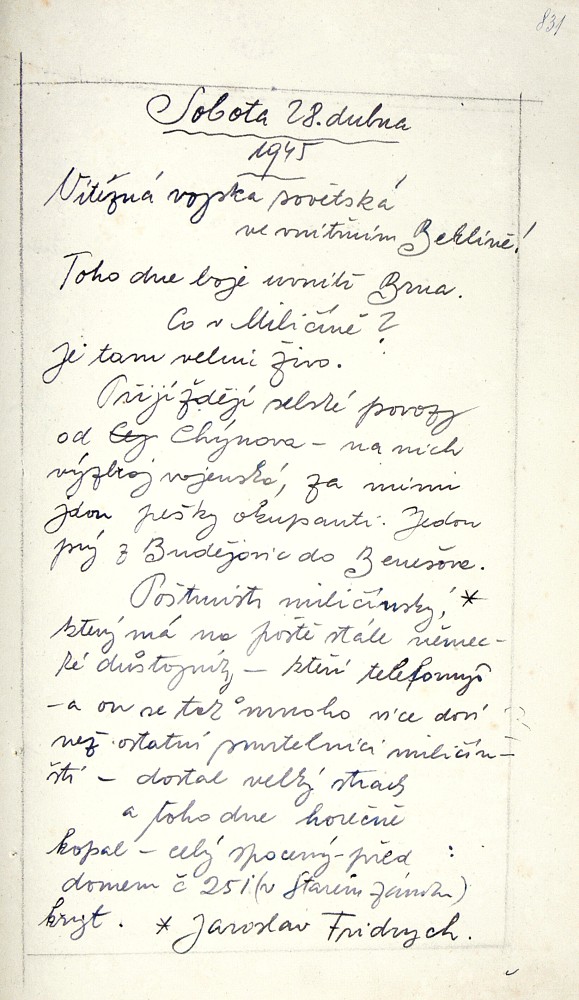 831
Sobota 28. dubna
1945
Vítězná vojska sovětská
ve vnitřním Berlíně!
Toho dne boje uvnitř Brna.
Co v Miličíně?
Je tam velmi živo.
Přijíždějí selské povozy
od Chýnova – na nich
výzbroj vojenská, za nimi
jdou pěšky okupanti. Jedou
prý z Budějovic do Benešova.
Poštmistr miličínský, *
který má na poště stále němec-
ké důstojníky – kteří telefonují
– a on se tak mnoho více doví
než ostatní smrtelníci miličín-
ští – dostal velký strach
a toho dne horečně
kopal – celý spocený – před
domem č 251 (v Starém Zámku)
kryt. * Jaroslav Fridrych.